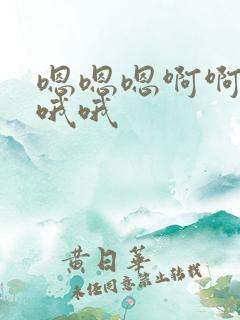 嗯嗯嗯啊啊
哦哦
黄日华
未经同意禁止转载